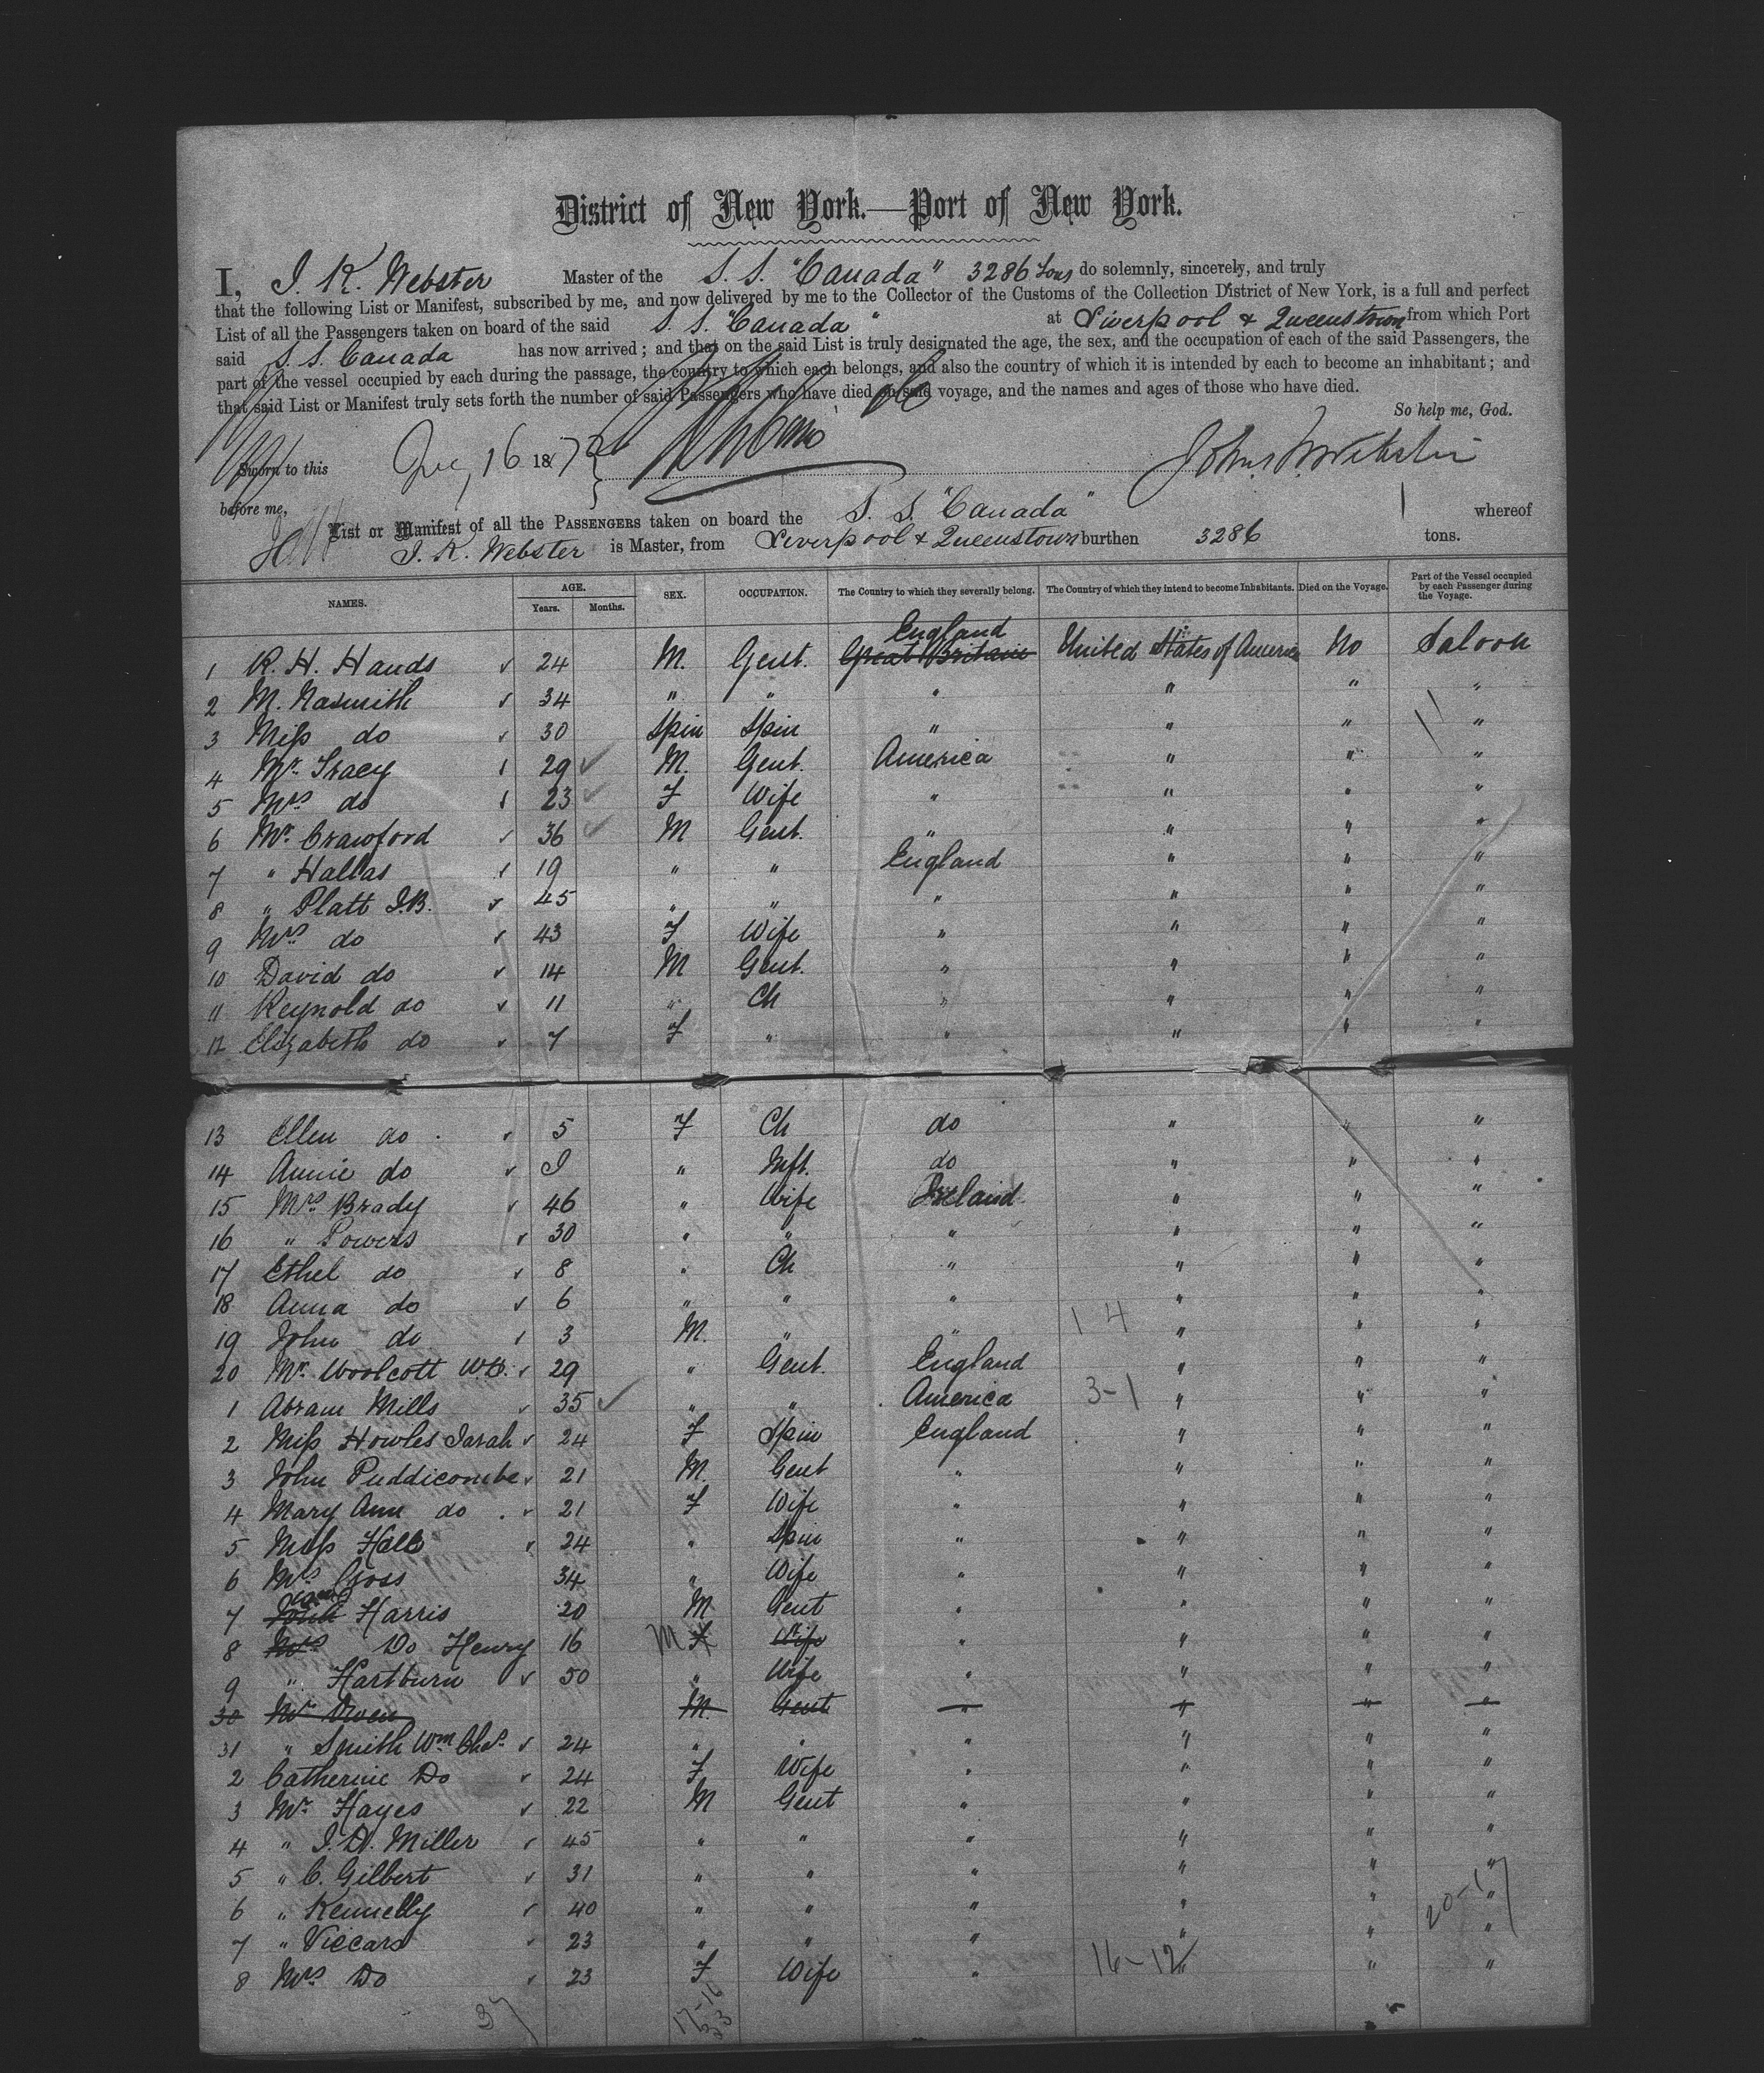 District of New York.—Port of New York.
I, J. K. Webster Master of the S. S. "Canada" 3286 Tons do solemnly, sincerely, and truly
that the following List or Manifest, subscribed by me, and now delivered by me to the Collector of the Customs of the Collection District of New York, is a full and perfect
List of all the Passengers taken on board of the said S. S. "Canada" at Liverpool & Queenstown from which Port
said S. S. Canada has now arrived; and that on the said List is truly designated the age, the sex, and the occupation of each of the said Passengers, the
part of the vessel occupied by each during the passage, the country to which each belongs, and also the country of which it is intended by each to become an inhabitant; and
that said List or Manifest truly sets forth the number of said Passengers who have died on said voyage, and the names and ages of those who have died.
So help me, God.
Sworn to this 16 187
before me,
List or Manifest of all the PASSENGERS taken on board the S. S. "Canada" whereof
J. K. Webster is Master, from Liverpool & Queenstown burthen 3286 tons.
NAMES. AGE. Years. Months. SEX. OCCUPATION. The Country to which they severally belong. The Country of which they intend to become Inhabitants. Died on the Voyage. Part of the Vessel occupied by each Passenger during the Voyage.
England
1 R. H. Hands 24 M. Gent. Great Britain United States of America No Saloon
2 M. Nasmith 34 " " " " " "
3 Miss do 30 Spin Spin " " " "
4 Mr. Tracy 29 M. Gent. America " " "
5 Mrs do 23 F Wife " " " "
6 Mr. Crawford 36 M Gent. " " " "
7 " Hallas 19 " " England " " "
8 " Platt J.B. 45 " " " " " "
9 Mrs do 43 F Wife " " " "
10 David do 14 M Gent. " " " "
11 Reynold do 11 " Ch " " " "
12 Elizabeth do 7 F " " " " "
13 Ellen do 5 F Ch do " " "
14 Annie do I " Inft. do " " "
15 Mrs Brady 46 " Wife Ireland " " "
16 " Powers 30 " " " " " "
17 Ethel do 8 " Ch " " " "
18 Anna do 6 " " " " " "
19 John do 3 M. " " 14 " " "
20 Mr. Woolcott W.D. 29 " Gent. England " " "
1 Abram Mills 35 " " America 3-1 " " "
2 Miss Howles Sarah 24 F Spin England " " "
3 John Puddicombe 21 M. Gent " " " "
4 Mary Ann do 21 F Wife " " " "
5 Miss Hall 24 " Spin " " " "
6 Mrs Goss 34 " Wife " " " "
7 John Harris 20 M Gent " " " "
8 Mrs Do Henry 16 M F Wife " " " "
9 " Hartburn 50 " Wife " " " "
30 Mr Owen M. Gent " " " "
31 " Smith Wm Chas. 24 " " " " " "
2 Catherine Do 24 F Wife " " " "
3 Mr. Hayes 22 M Gent " " " "
4 " J. D. Miller 45 " " " " " "
5 " C. Gilbert 31 " " " " " "
6 " Kennelly 40 " " " " " "
7 " Viccars 23 " " " " " "
8 Mrs Do 23 F Wife " 16-12 " " "
20-17
37
17-16
33